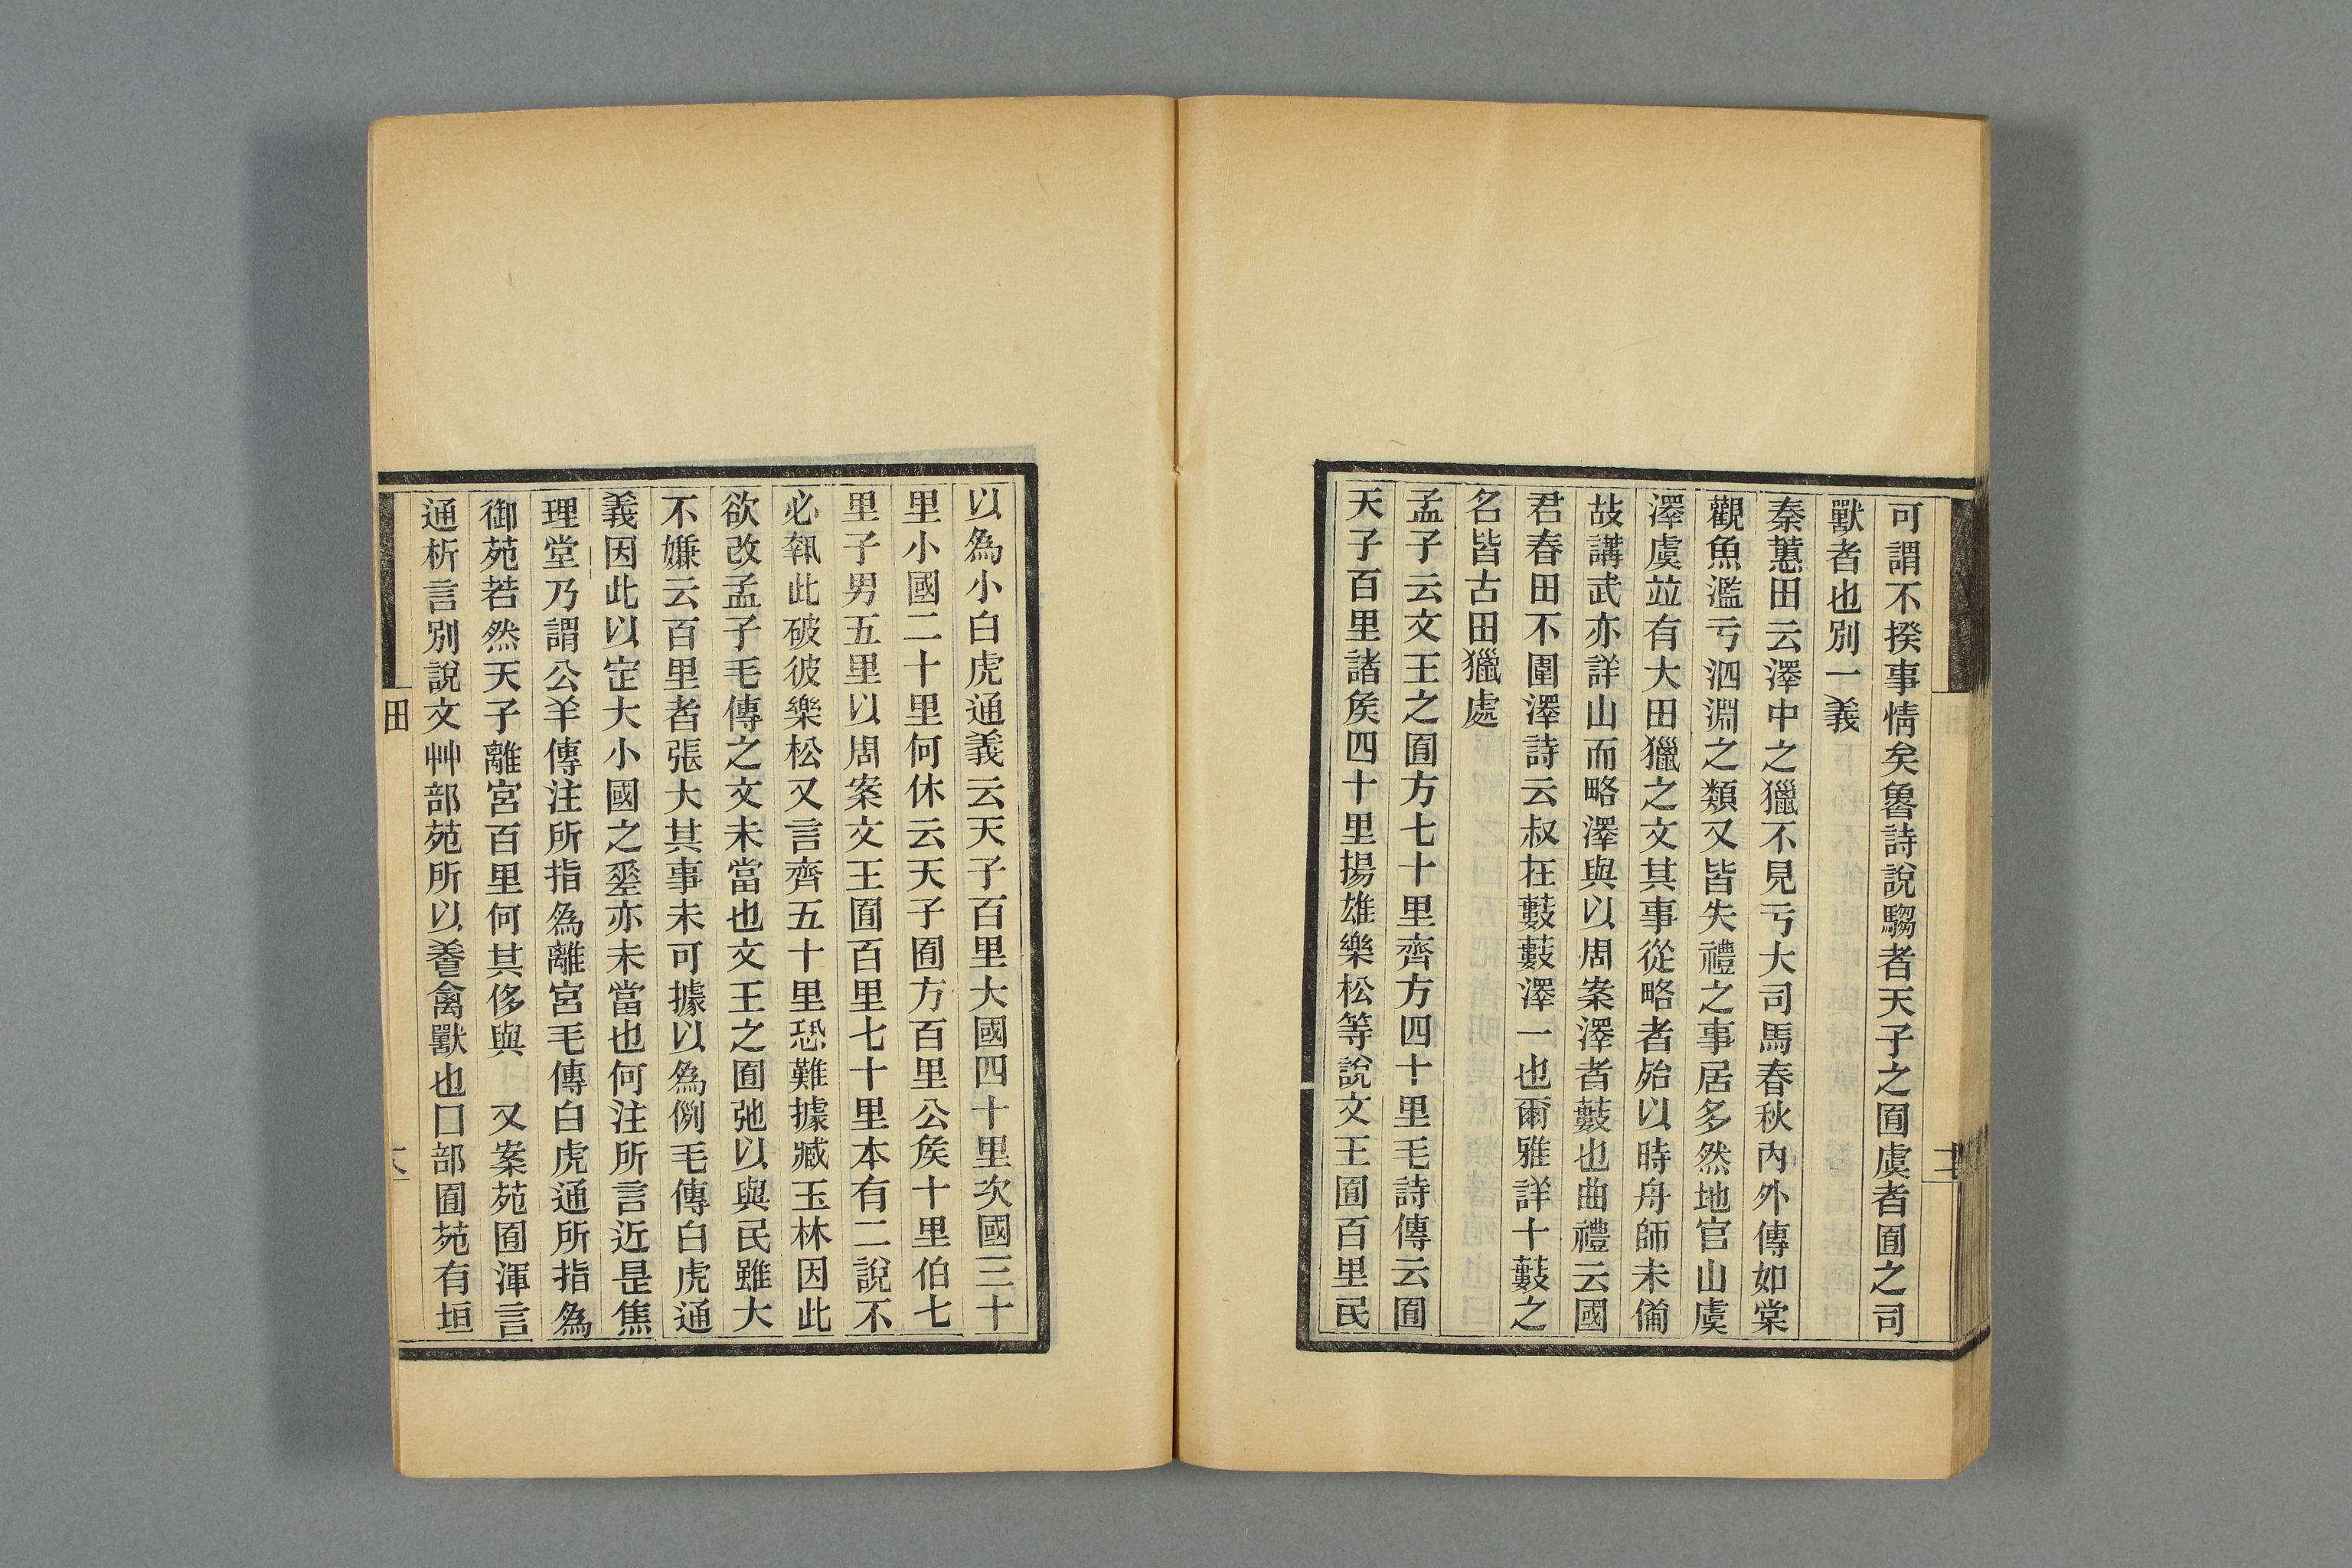 可謂不揆事情矣魯詩說騶者天子之囿虞者囿之司
獸者也別一義
秦蕙田云澤中之獵不見亏大司馬春秋內外傳如棠
觀魚濫亏泗淵之類又皆失禮之事居多然地官山虞
澤虞竝有大田獵之文其事從略者始以時舟師未僃
故講武亦詳山而略澤與以周案澤者藪也曲禮云國
君春田不圍澤詩云叔在藪藪澤一也爾雅詳十藪之
名皆古田獵處
孟子云文王之囿方七十里齊方四十里毛詩傳云囿
天子百里諸矦四十里揚雄樂松等說文王囿百里民
以爲小白虎通義云天子百里大國四十里次國三十
里小國二十里何休云天子囿方百里公矦十里伯七
里子男五里以周案文王囿百里七十里本有二說不
必執此破彼樂松又言齊五十里恐難據臧玉林因此
欲改孟子毛傳之文未當也文王之囿弛以與民雖大
不嫌云百里者張大其事未可據以爲例毛傳白虎通
義因此以定大小國之差亦未當也何注所言近是焦
理堂乃謂公羊傳注所指爲離宮毛傳白虎通所指爲
御苑若然天子離宮百里何其侈與　又案苑囿渾言
通析言別說文艸部苑所以養禽獸也囗部囿苑有垣
田